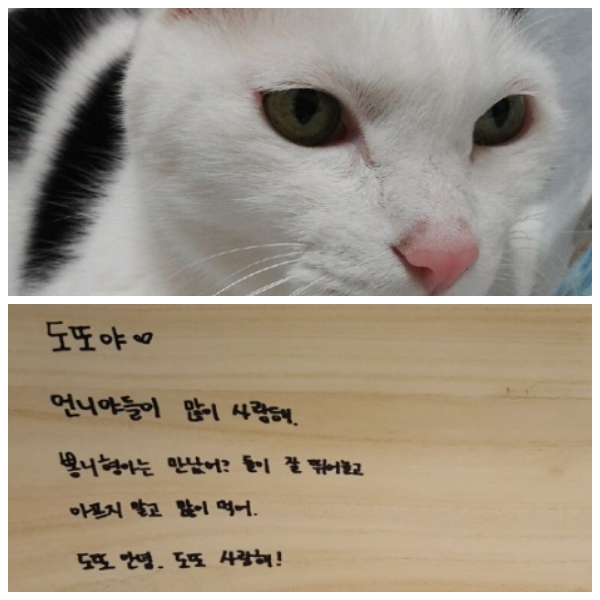 도또야♡
언니야들이 많이 사랑해.
뽕니형아는 만났어? 둘이 잘 뛰어놀고
아프지 말고 많이 먹어.
도또 안녕. 도또 사랑해!